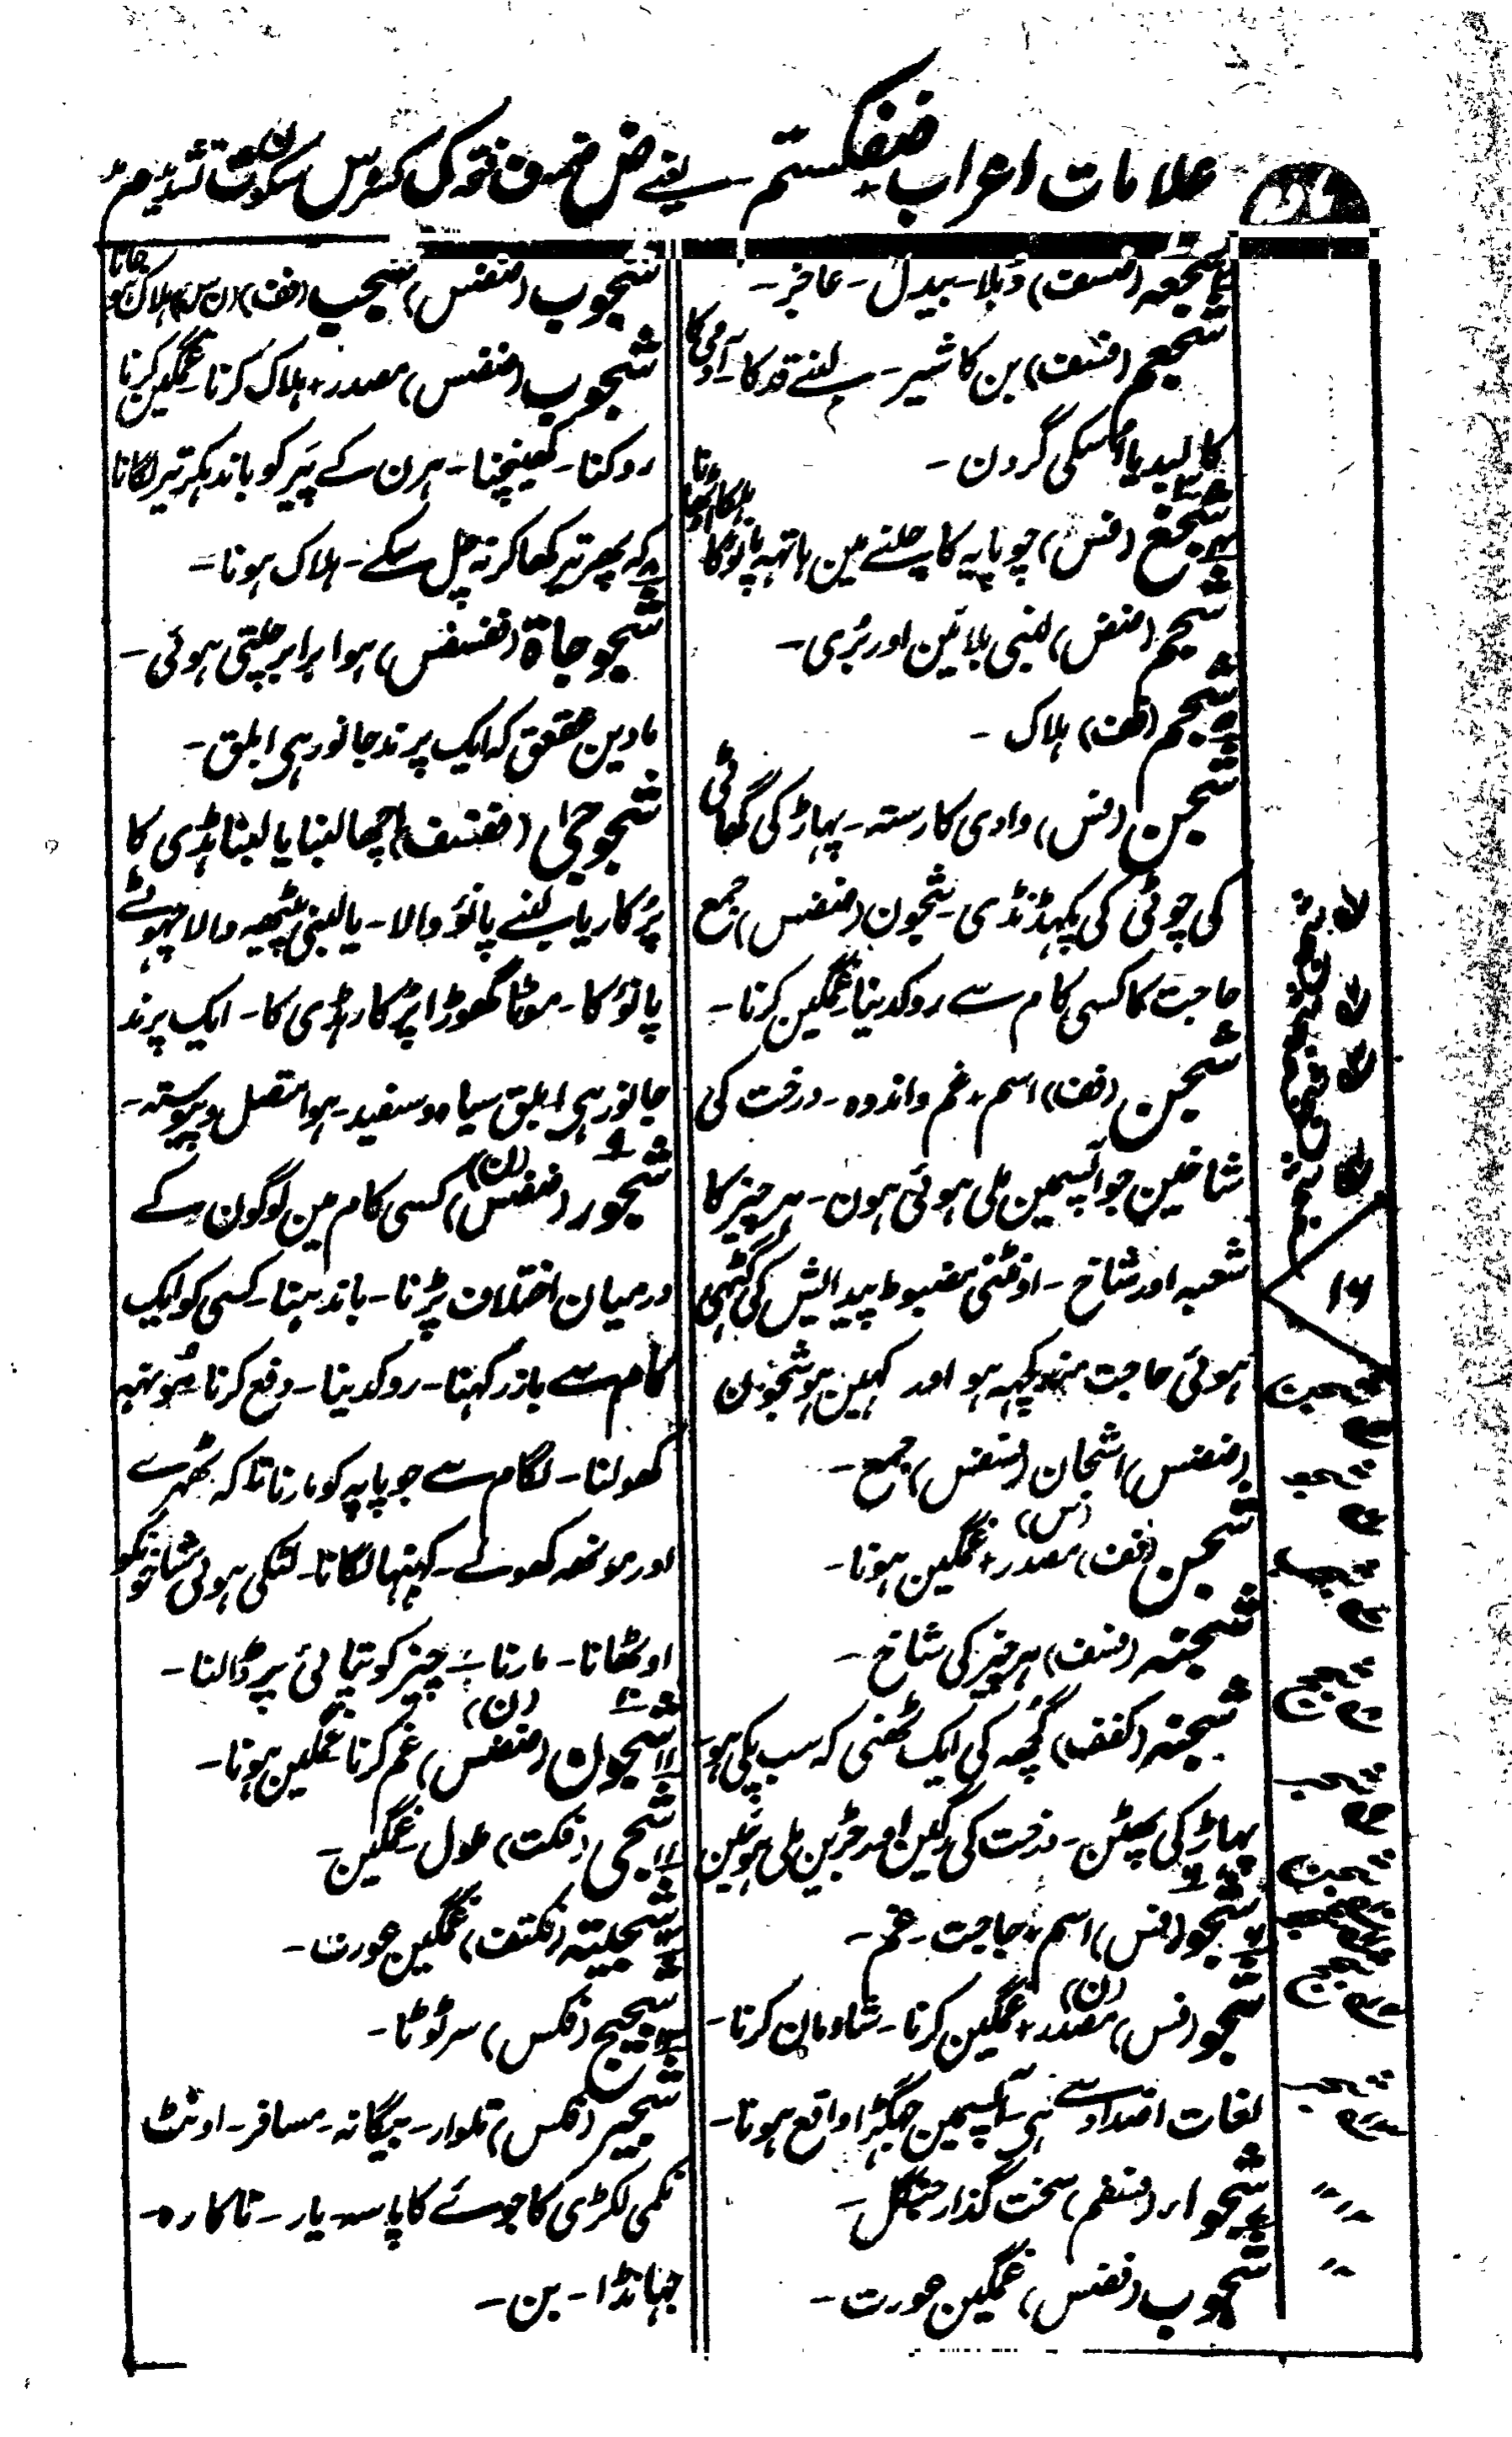 علامات اعراب ضفکستم یعنے ض ضمہ ف فتحہ ک کسرہ س سکون ت تشدید م مد
شجعہ (ضسف) دُبلا۔ بیدل۔ عاجز۔
شجعم (فسف) بن کا شیر۔ لنبے قد کا۔ آدمی کا
کالبد یا اسکی گردن۔
شجغ (فس) چوپایہ کا چلنے مین ہاتھہ پانوکا ہلکا اوٹھانا
شجم (ضض) لنبی بلائین اور بُری۔
شجم (فف) ہلاک۔
شجن (فس) وادی کا رستہ۔ پہاڑ کی گھاٹی
کی چوٹی کی پگہڈنڈی۔ شجون (ضضس) جمع
حاجت کا کسی کام سے روکدینا غمگین کرنا۔
شجن (فف) اسم ٭ غم و اندوہ۔ درخت کی
شاخین جو آپسمین ملی ہوئی ہون۔ ہر چیز کا
شعبہ اور شاخ۔ اونٹنی مضبوط پیدایش کی گٹھی
ہوئی حاجت کہین ہو شجون
(ضضس) اشجان (فسفس) جمع۔
شجن (فف) (س) مصدر ٭ غمگین ہونا۔
شجنہ (ضسف) ہر چیز کی شاخ۔
شجنہ (کفف) گچھہ کی ایک ٹھنی کہ سب پکی ہو۔
پہاڑ کی پھٹن۔ درخت کی رگین اور جڑین ملی ہوئین
شجو (فس) اسم ٭ حاجت۔ غم۔
شجو (فس) (ن) مصدر ٭ غمگین کرنا۔ شادمان کرنا۔
لغات اضداد سے ہی۔ آپسمین جھگڑا واقع ہونا۔
شجوار (فسفم) سخت گذار جنگل۔
شجوب (فضس) غمگین عورت۔
شجوب (ضضس) شجب (فف) (ن س) ہلاک ہو جانا
شجوب (ضضس) مصدر ٭ ہلاک کرنا۔ غمگین کرنا
روکنا۔ کھینچنا۔ ہرن کے پَیر کو باندہکر تیر لگانا
کہ پھر تیر کھا کر نہ چل سکے۔ ہلاک ہونا۔
شجوجاۃ (فضسفس) ہوا برابر چلتی ہوئی۔
مادین عقعق کہ ایک پرند جانور ہی ابلق۔
شجوجیٰ (فضسف) اچھا لنبا یا لنبا ہڈی کا
پُر کار یا لنبے پانؤ والا۔ یا لنبی پیٹھہ والا چہوٹے
پانؤ کا۔ موٹا گھوڑا پُر کار ہڈی کا۔ ایک پرند
جانور ہی ابلق سیاہ و سفید۔ ہوا متصل و پیوستہ۔
شجور (ضضس) (ن) کسی کام مین لوگون کے
درمیان اختلاف پڑنا۔ باندہنا۔ کسی کو ایک
کام سے باز رکہنا۔ روکدینا۔ دفع کرنا مونہہ
کھولنا۔ لگام سے چوپایہ کو مارنا تاکہ ٹھہرے
اور مونھہ کھولے۔ کہنبہا لگانا۔ لٹکی ہوئی شاخونکو
اوٹھانا۔ مارنا چیز کو تپائی پر ڈالنا۔
شجون (ضضس) (ن) غم کرنا غمگین ہونا۔
شجی (فکت) ملول۔ غمگین۔
شجیتہ (فکتف) غمگین عورت۔
شجیج (فکس) سر ٹوٹا۔
شجیر (فکس) تلوار۔ بیگانہ۔ مسافر۔ اونٹ
نکمی لکڑی کا جوئے کا پاسہ۔ یار۔ ناکارہ۔
جہانڈا۔ بن۔
۱۶